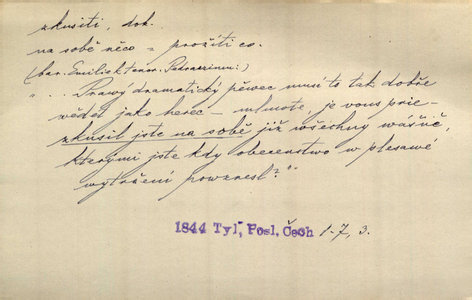 zkusiti, dok.
na sobě něco = prožíti co.
(bar. Emilisk tenor. Pedrazzimu:)
"... Prawý dramatický pěwec musí to tak dobře
wědět jako herec – mluwte, je wous prie –
zkusil jste na sobě již wšechny wášně,
kterými jste kdy obecenstwo w plesawé
wytržení powznesl?"
1844 Tyl, Posl. Čech 1-7, 3.